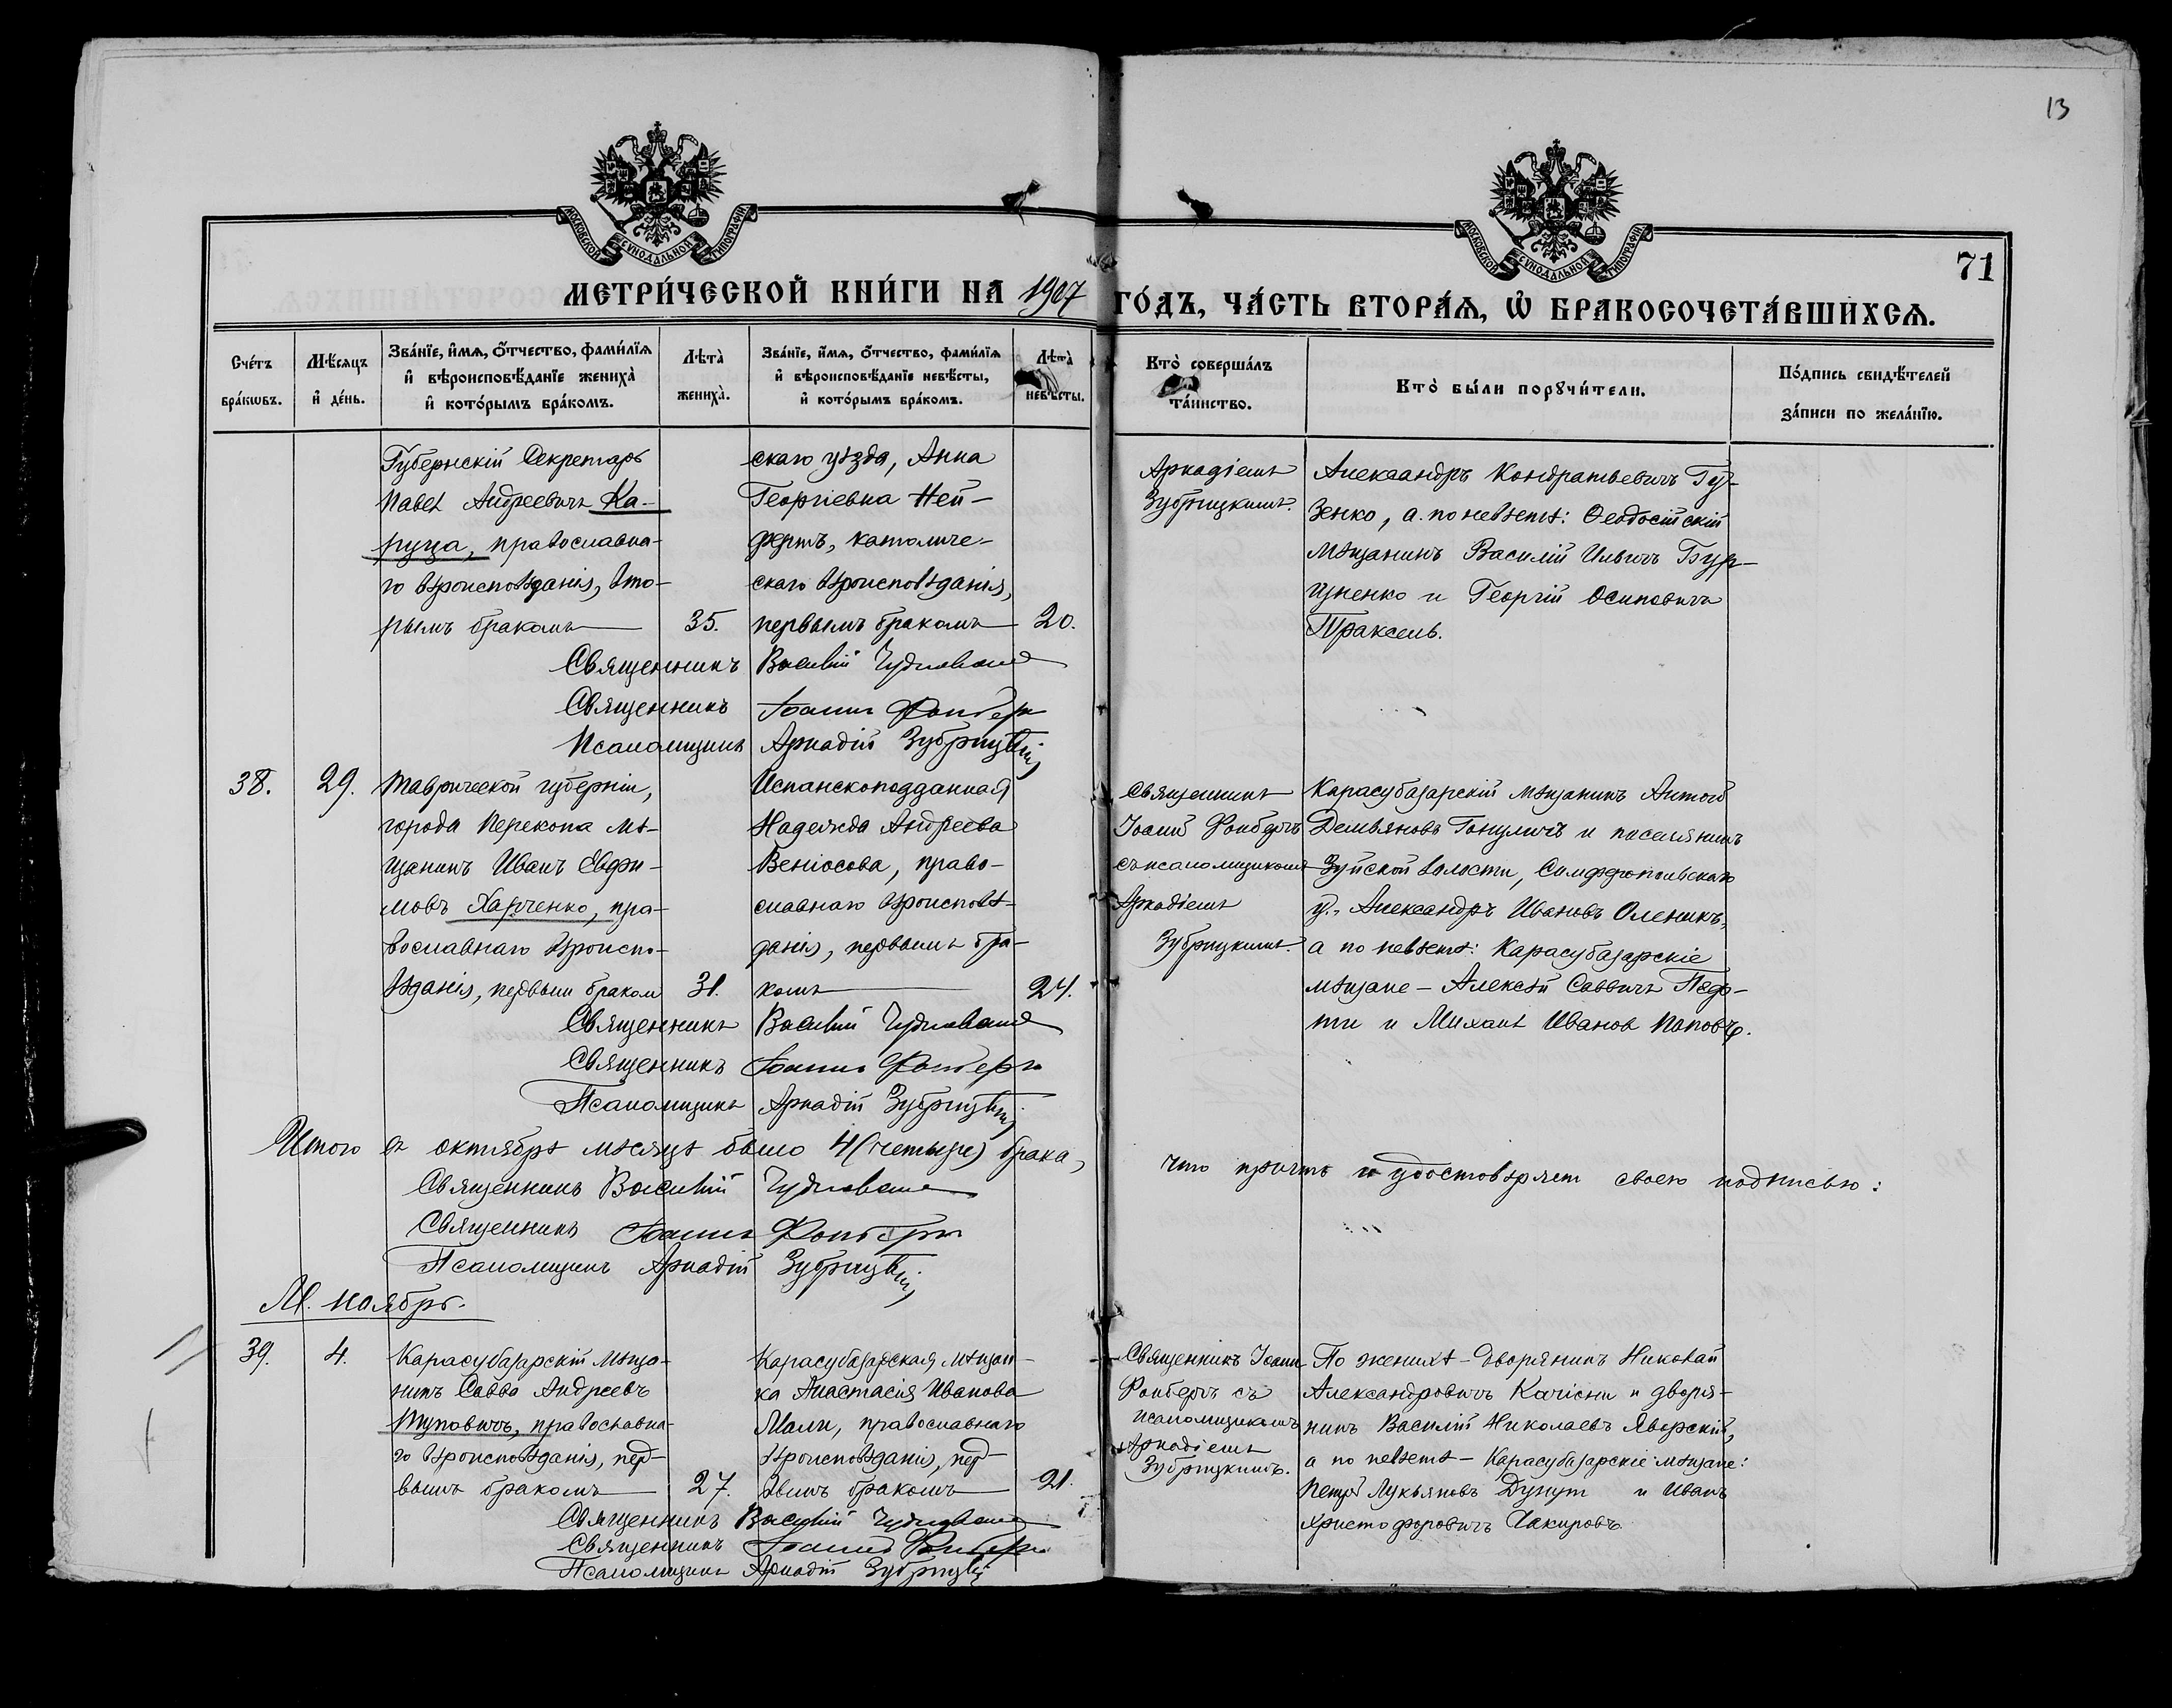 13
МОСКОВСКОЙ СѴНОДАЛЬНОЙ ТИПОГРАФІИ
МОСКОВСКОЙ СѴНОДАЛЬНОЙ ТИПОГРАФІИ
71
МЕТРИ́ЧЕСКОЙ КНИ́ГИ НА 1907 ГО́ДЪ, ЧА́СТЬ ВТОРА́Я, Ѡ БРАКОСОЧЕТА́ВШИХСЯ.
Сче́тъ
бра́кѡвъ.
Мѣ́сяцъ
и де́нь.
Зва́нїе, и́мѧ, ѻ҆́тчество, фами́лїѧ
и вѣроисповѣ́данїе жениха̀
и кото́рымъ бра́комъ.
Лѣта̀
жениха̀.
Зва́нїе, и́мѧ, ѻ҆́тчество, фами́лїѧ
и вѣроисповѣ́данїе невѣ́сты,
и кото́рымъ бра́комъ.
Лѣта̀
невѣ́сты.
Кто̀ соверша́лъ
та́инство.
Кто̀ бы́ли порꙋчи́тели.
По́дпись свидѣ́телей
за́писи по жела́нїю.
Губернскій Секретарь
Павелъ Андреевичъ Ка-
руца, православна-
го вѣроисповѣданія, вто-
рымъ бракомъ
35.
скаго уѣзда, Анна
Георгіевна Ней-
фертъ, католиче-
скаго вѣроисповѣданія,
первымъ бракомъ
20.
Аркадіемъ
Зубрицкимъ.
Александръ Кондратьевичъ Гу-
зенко, а по невѣстѣ: Ѳеодосійскій
мѣщанинъ Василій Ильичъ Бур-
цненко и Георгій Осиповичъ
Траксель.
Священникъ Василій
Священникъ Іоаннъ Фонберъ
Псаломщикъ Аркадій Зубрицкій
38.
29.
Таврической губерніи,
города Перекопа мѣ-
щанинъ Иванъ Евфи-
мовъ Харченко, пра-
вославнаго вѣроиспо-
вѣданія, первымъ браком
31.
Испанскоподданная
Надежда Андреева
Веніосова, право-
славнаго вѣроисповѣ-
данія, первымъ бра-
комъ
24.
Священникъ
Іоаннъ Фонберъ
съ псаломщикомъ
Аркадіемъ
Зубрицкимъ.
Карасубазарскій мѣщанинъ Антоній
Демьяновъ Гонуличъ и поселянинъ
Зуйской волости, Симферопольскаго
у., Александръ Ивановъ Оленикъ,
а по невѣстѣ: Карасубазарскіе
мѣщане - Алексѣй Саввичъ Педо-
ти и Михаилъ Ивановъ Поповъ.
Священникъ Василій
Священникъ Іоаннъ Фонберъ
Псаломщикъ Аркадій Зубрицкій
Итого въ октябрѣ мѣсяцѣ было 4 (четыре) брака,
что причтъ и удостовѣряет своею подписью:
Священникъ Василій
Священникъ Іоаннъ Фонберъ
Псаломщикъ Аркадій Зубрицкій
М. ноябрь.
39.
4.
Карасубазарскій мѣща-
нинъ Савва Андреевъ
Туповичъ, православна-
го вѣроисповѣданія, пер-
вымъ бракомъ
27.
Карасубазарская мѣщан-
ка Анастасія Иванова
Мали, православнаго
вѣроисповѣданія, пер-
вымъ бракомъ
21.
Священникъ Іоаннъ
Фонберъ съ
псаломщикомъ
Аркадіемъ
Зубрицкимъ.
По женихѣ - Дворянинъ Николай
Александровичъ Качіони и дворя-
нинъ Василій Николаевъ Яворскій,
а по невѣстѣ - Карасубазарскіе мѣщане:
Петръ Лукьяновъ Дупут и Иванъ
Христофоровичъ Чакировъ.
Священникъ Василій
Священникъ Іоаннъ Фонберъ
Псаломщикъ Аркадій Зубрицкій